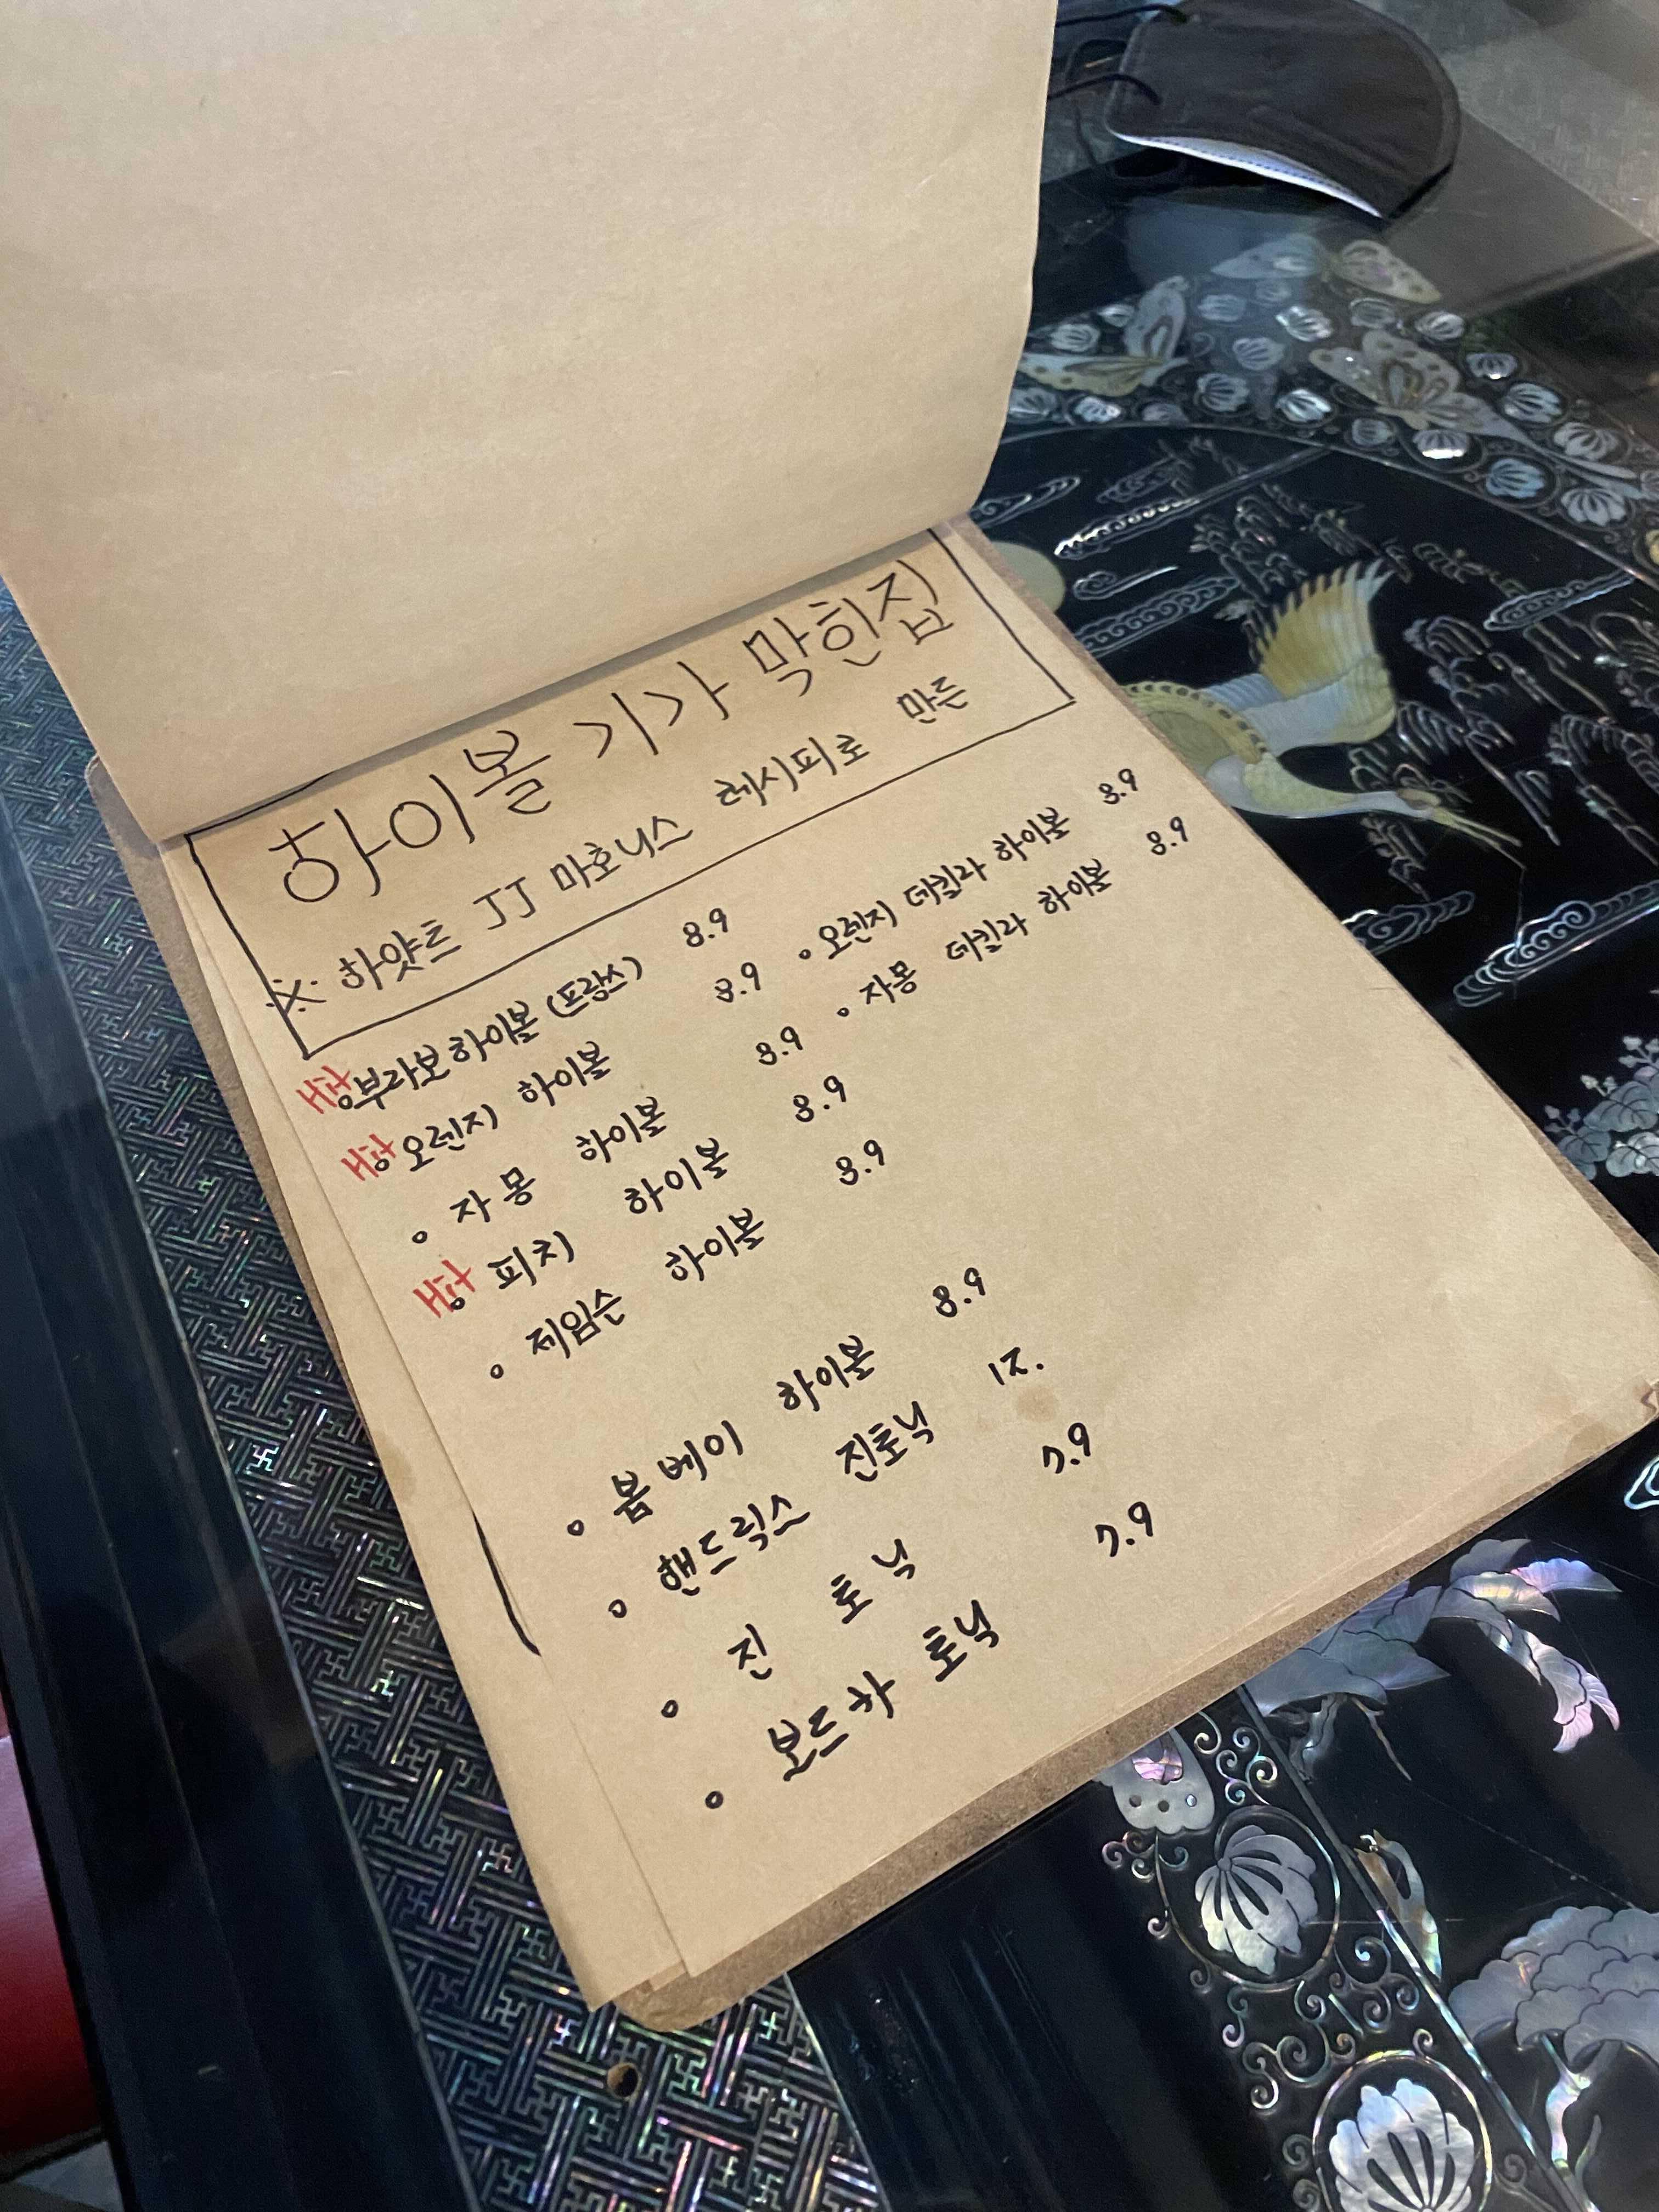 하이볼 기가 막힌집
※ 하얏트 JJ 마호니스 레시피로 만든
부라보하이볼 (프랑쓰) 8.9
오렌지 하이볼 8.9
• 자몽 하이볼 8.9
피치 하이볼 8.9
• 제임슨 하이볼 8.9
• 오렌지 데킬라 하이볼 8.9
• 자몽 데킬라 하이볼 8.9
• 봄베이 하이볼 8.9
• 핸드릭스 진토닉 12.
• 진 토닉 7.9
• 보드카 토닉 7.9